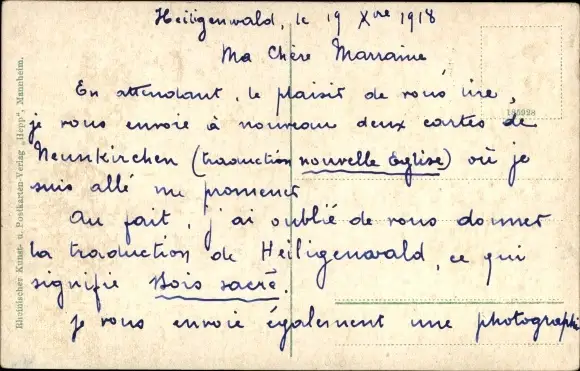 Heiligenwald, le 19 Xbre 1918
Ma Chère Marraine
En attendant, le plaisir de vous lire,
je vous envoie à nouveau deux cartes de
Neunkirchen (traduction nouvelle Eglise) où je
suis allé me promener
Au fait, j'ai oublié de vous donner
la traduction de Heiligenwald, ce qui
signifie Bois sacré.
je vous envoie également une photographie
Rheinischer Kunst- u. Postkarten-Verlag „Hepp", Mannheim.